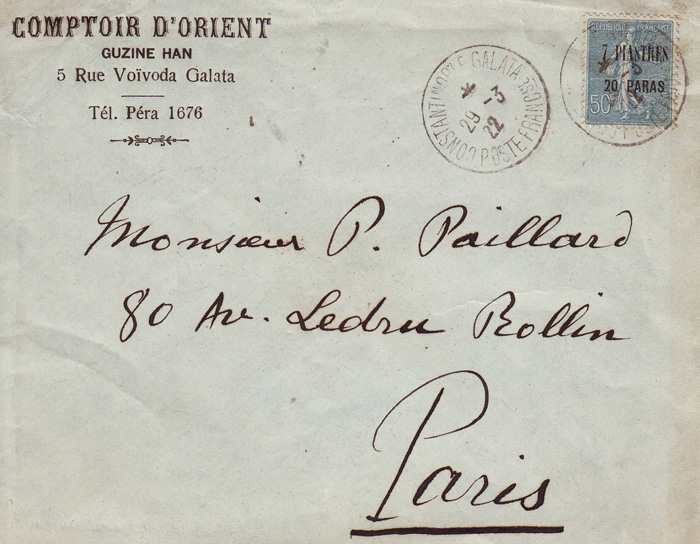 COMPTOIR D'ORIENT
GUZINE HAN
5 Rue Voïvoda Galata
Tél. Péra 1676
CONSTANTINOPLE GALATA
POSTE FRANÇSE
29 -3
22
REPUBLIQUE FRANÇAISE
7 PIASTRES
20 PARAS
50
Monsieur P. Paillard
80 Av. Ledru Rollin
Paris